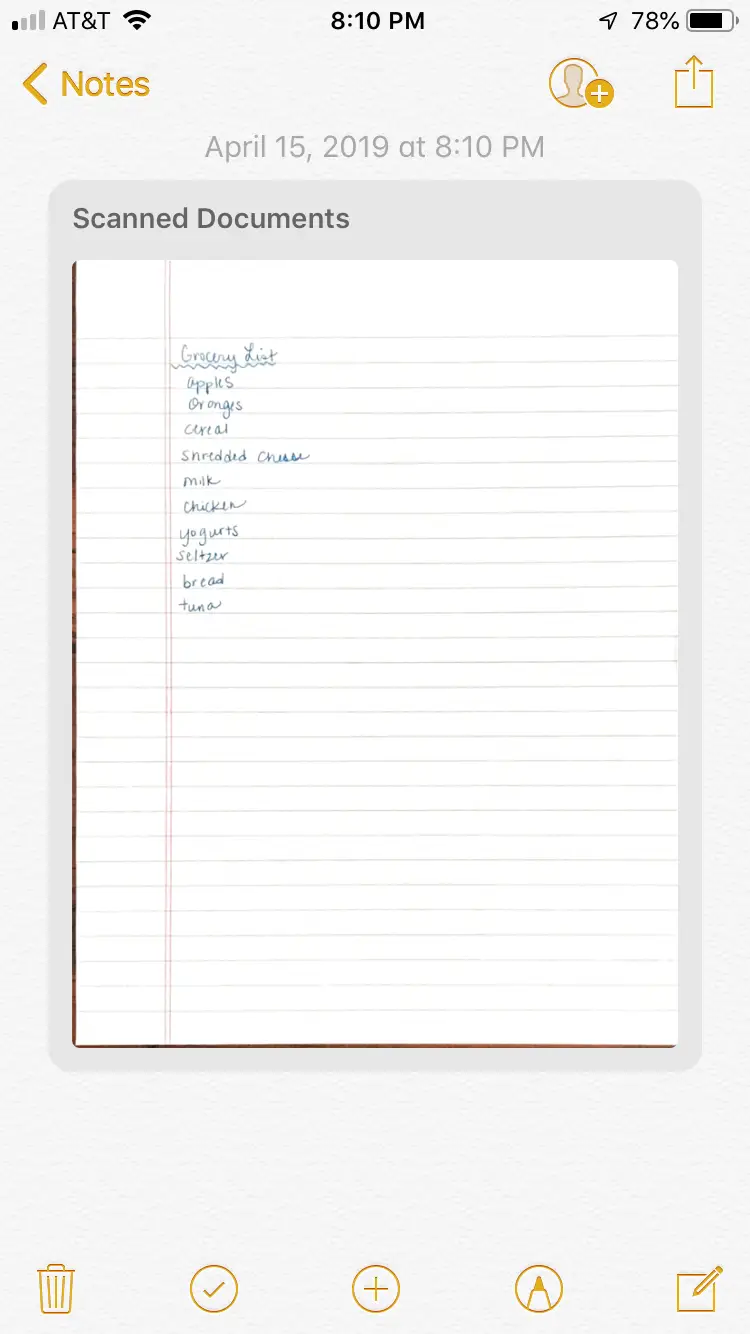 AT&T 8:10 PM 78%
Notes
April 15, 2019 at 8:10 PM
Scanned Documents
Grocery List
apples
oranges
cereal
shredded cheese
milk
chicken
yogurts
seltzer
bread
tuna